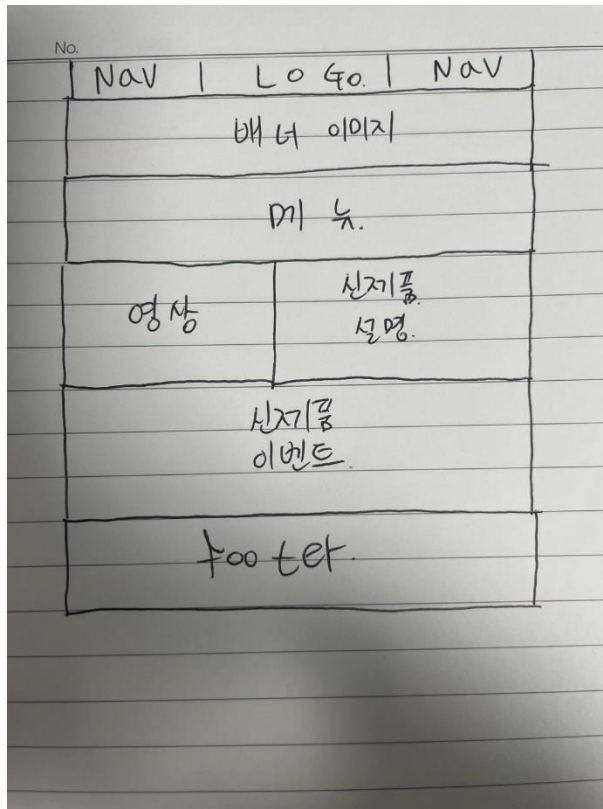 No.
Nav | LoGo. | Nav
배너 이미지
메뉴.
영상
신제품
설명.
신제품
이벤트.
footer.